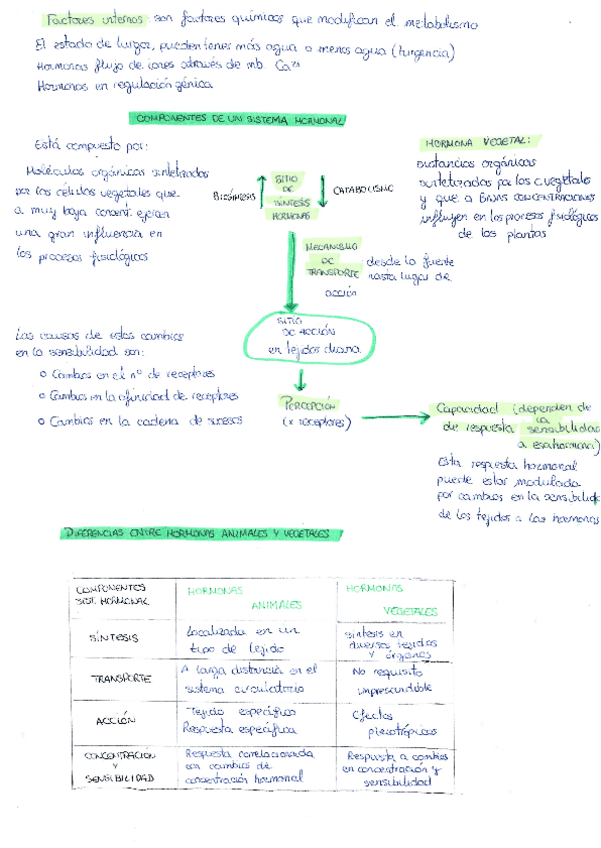 Factores internos: son factores químicos que modifican el metabolismo
El estado de turgor, pueden tener más agua o menos agua (turgencia)
Hormonas flujo de iones através de mb Ca²⁺
Hormonas en regulación génica
COMPONENTES DE UN SISTEMA HORMONAL
Está compuesto por:
Moléculas orgánicas sintetizadas
por las células vegetales que
a muy baja concent. ejercen
una gran influencia en
los procesos fisiológicos
BIOSÍNTESIS
SITIO
DE
SÍNTESIS
HORMONAS
CATABOLISMO
HORMONA VEGETAL:
sustancias orgánicas
sintetizadas por las c.vegetales
y que a BAJAS CONCENTRACIONES
influyen en los procesos fisiológicos
de las plantas
MECANISMO
DE
TRANSPORTE
desde la fuente
hasta lugar de
acción
SITIO
DE ACCIÓN
en tejidos diana
Las causas de estos cambios
en la sensibilidad son:
o Cambios en el nº de receptores
o Cambios en la afinidad de receptores
o Cambios en la cadena de sucesos
PERCEPCIÓN
(x receptores)
Capacidad (dependen de
de respuesta la sensibilidad
a esa hormona)
Esta respuesta hormonal
puede estar modulada
por cambios en la sensibilida
de los tejidos a las hormonas
DIFERENCIAS ENTRE HORMONAS ANIMALES Y VEGETALES
COMPONENTES
SIST. HORMONAL
HORMONAS
ANIMALES
HORMONAS
VEGETALES
SÍNTESIS
Localizada en un
tipo de tejido
Síntesis en
diversos tejidos
y órganos
TRANSPORTE
A larga distancia en el
sistema circulatorio
No requisito
imprescindible
ACCIÓN
Tejido específico
Respuesta específica
Efectos
pleiotrópicos
CONCENTRACIÓN
Y
SENSIBILIDAD
Respuesta correlacionada
con cambios de
concentración hormonal
Respuesta a cambios
en concentración y
sensibilidad